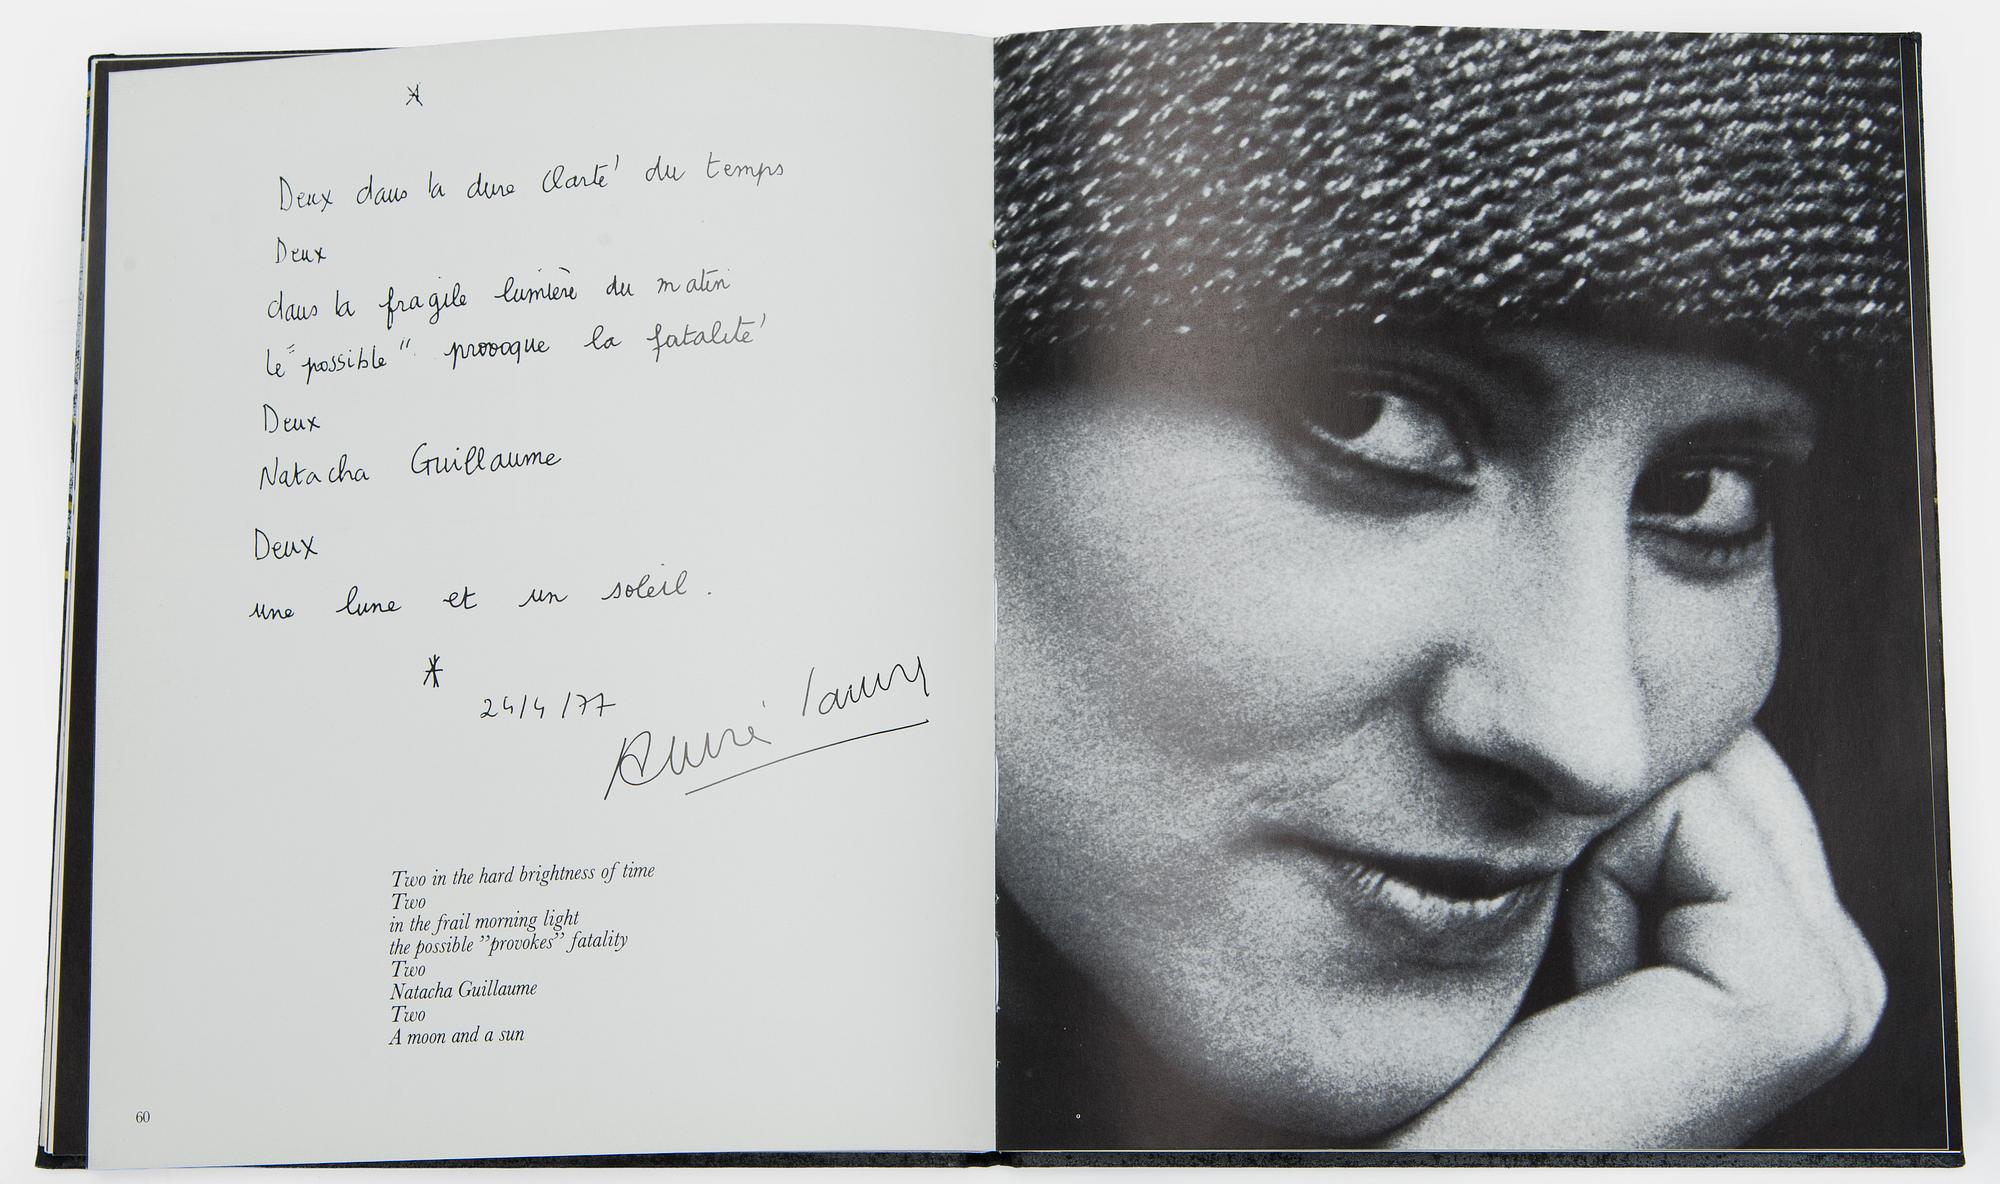 Deux dans la dure clarté du temps
Deux
dans la fragile lumière du matin
le "possible" provoque la fatalité
Deux
Natacha Guillaume
Deux
une lune et un soleil.
24/4/77
André Laury
Two in the hard brightness of time
Two
in the frail morning light
the possible ”provokes” fatality
Two
Natacha Guillaume
Two
A moon and a sun
60